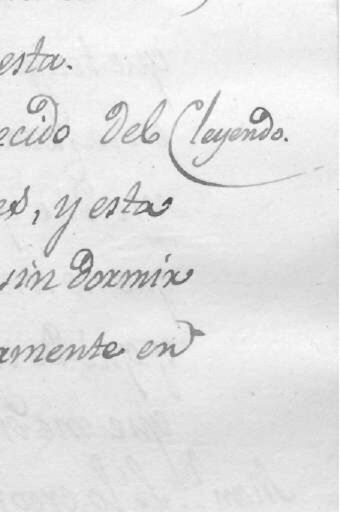 esta.
ecido del (leyendo.
es, y esta
sin dormir
amente en